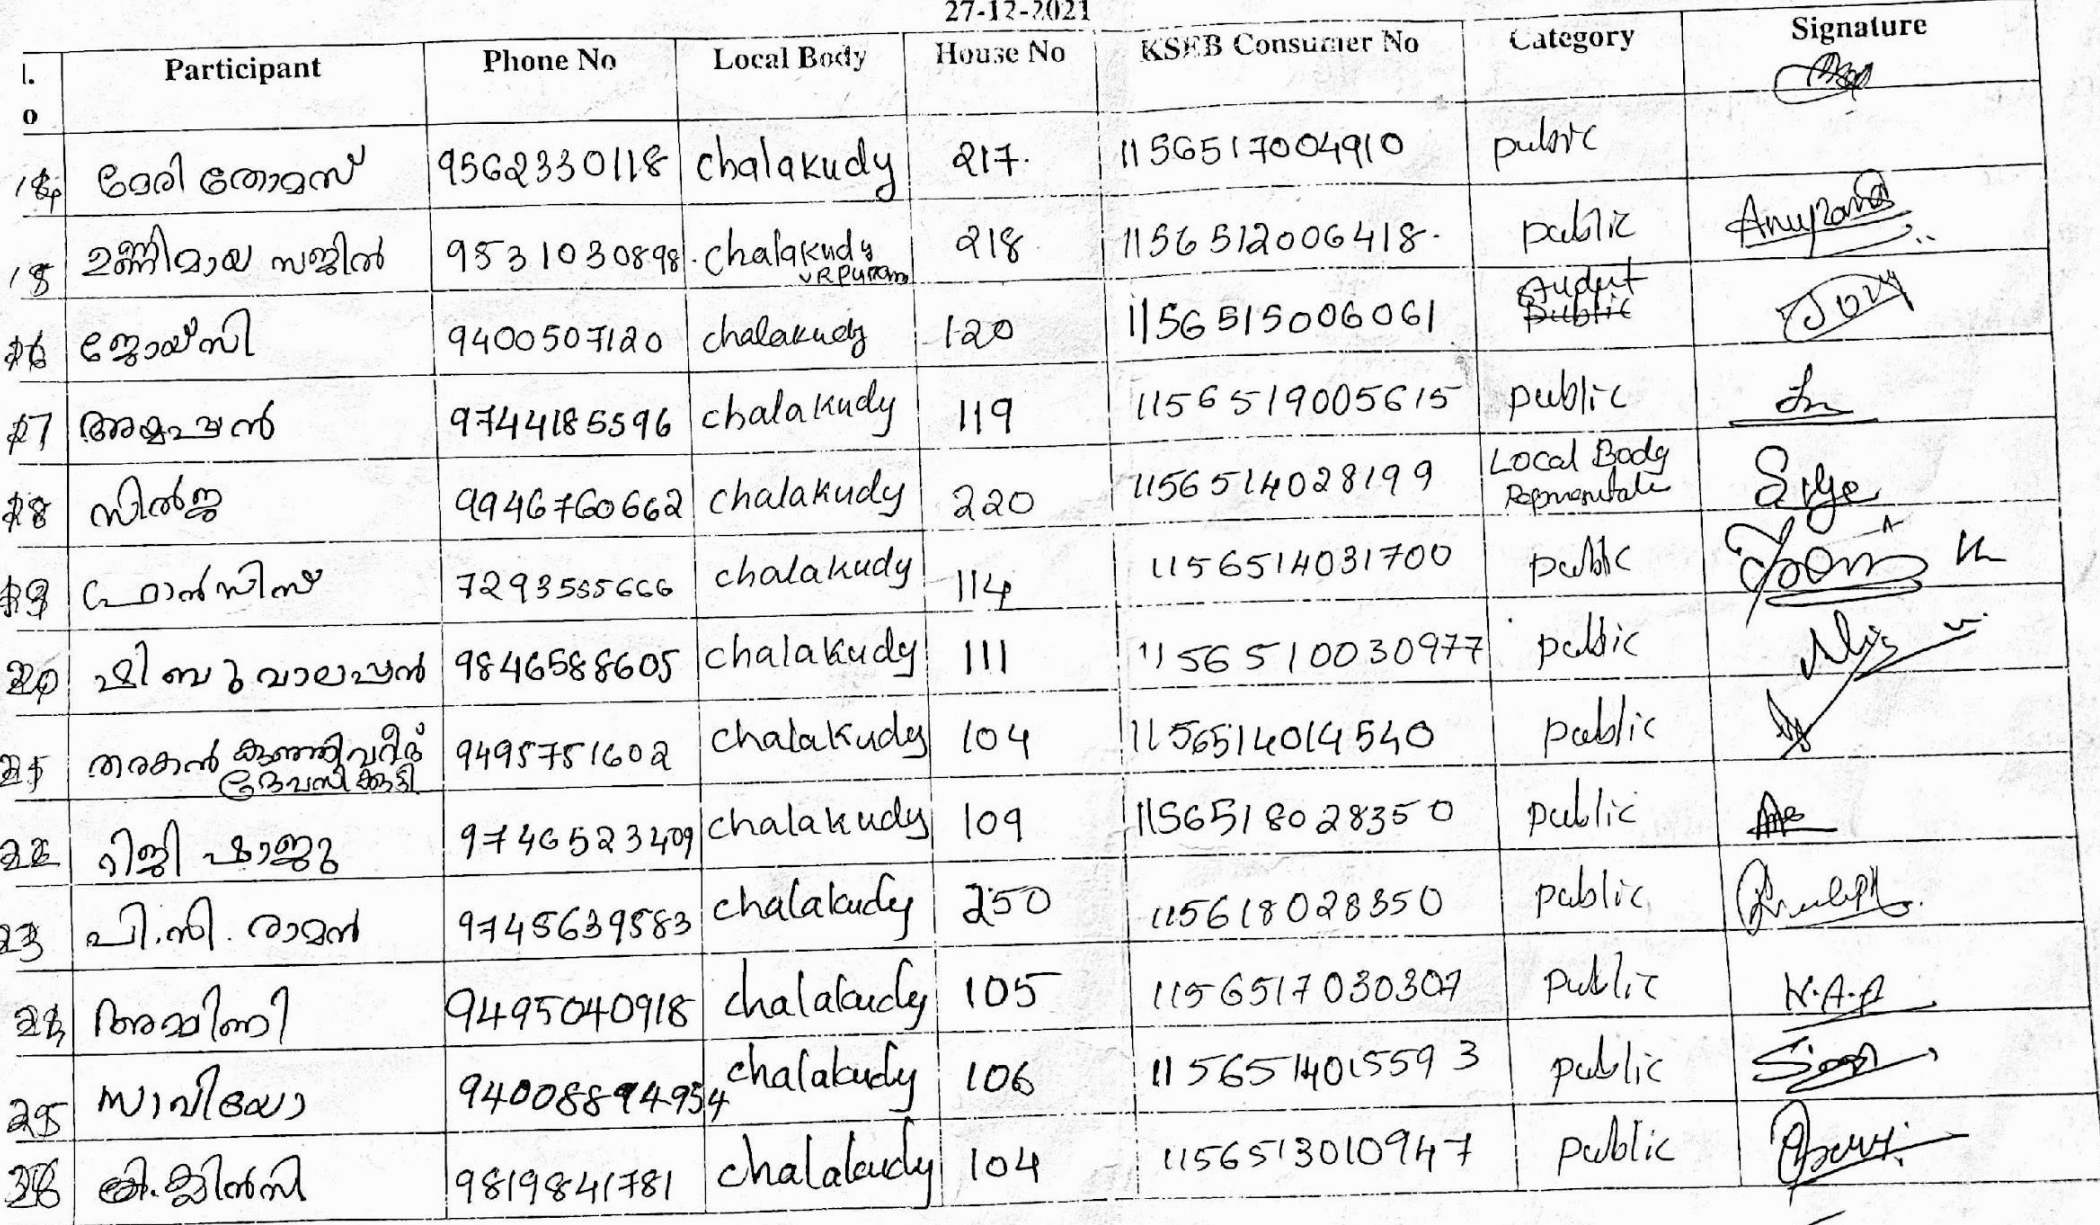 27-12-2021
l.
o Participant Phone No Local Body House No KSEB Consumer No Category Signature
14 മേരി തോമസ് 9562330118 chalakudy 217. 1156517004910 public
15 ഉണ്ണിമായ സജിൽ 9531030898. chalakudy 218 1156512006418. public
VR puram
student
16 ജോയ്സി 9400507120 chalakudy 120 1156515006061 public
17 അയ്യപ്പൻ 9744185596 chalakudy 119 1156519005615 public
18 സിൽജ 9946760662 chalakudy 220 1156514028199 Local Body
19 ഫ്രാൻസിസ് 7293555666 chalakudy 114 1156514031700 public
20 ഷിബു വാലപ്പൻ 9846588605 chalakudy 111 1156510030977 public
21 തരകൻ കുഞ്ഞുവറീത് 9495751602 chalakudy 104 1156514014540 public
ദേവസിക്കുട്ടി
22 റിജി ഷാജു 9746523409 chalakudy 109 1156518028350 public
23 പി.സി. രാമൻ 9745639583 chalakudy 250 115618028350 public
24 അമ്മിണി 9495040918 chalakudy 105 1156517030307 public K.A.A
25 സാവിയോ 94008894954 chalakudy 106 1156514015593 public
26 ജിൻസി 9819841781 chalakudy 104 1156513010947 public